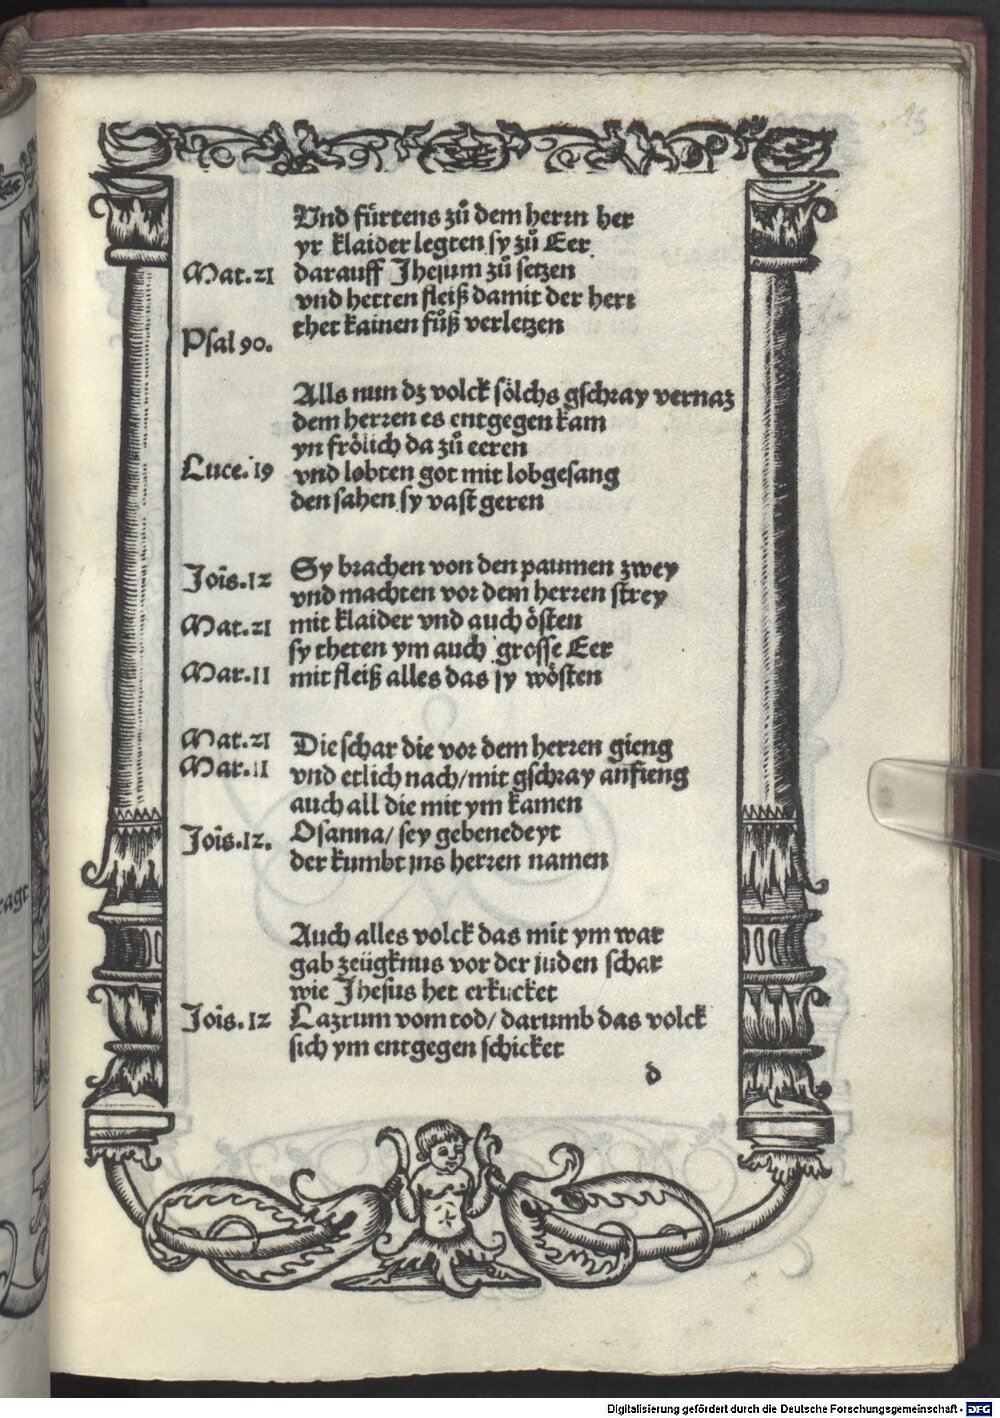 Vnd fürtens zů dem herrn her
yr klaider legten sy zů Eer
Mat.21 darauff Jhesum zů setzen
vnd hetten fleiß damit der herr
thet kainen fůß verletzen
Psal 90.
Alls nun dz volck sölchs gschray vernaz
dem herren es entgegen kam
yn frölich da zů eeren
Luce.19 vnd lobten got mit lobgesang
den sahen sy vast geren
Joīs.12 Sy brachen von den paumen zwey
vnd machten vor dem herren strey
Mat.21 mit klaider vnd auch östen
sy theten ym auch grosse Eer
Mar.11 mit fleiß alles das sy wösten
Mat.21 Die schar die vor dem herren gieng
Mar.11 vnd etlich nach/mit gschray anfieng
auch all die mit ym kamen
Joīs.12. Osanna/ sey gebenedeyt
der kumbt ins herren namen
Auch alles volck das mit ym war
gab zeügknus vor der juden schar
wie Jhesus het erkucket
Joīs.12 Lazrum vom tod/ darumb das volck
sich ym entgegen schicket
d
Digitalisierung gefördert durch die Deutsche Forschungsgemeinschaft - DFG